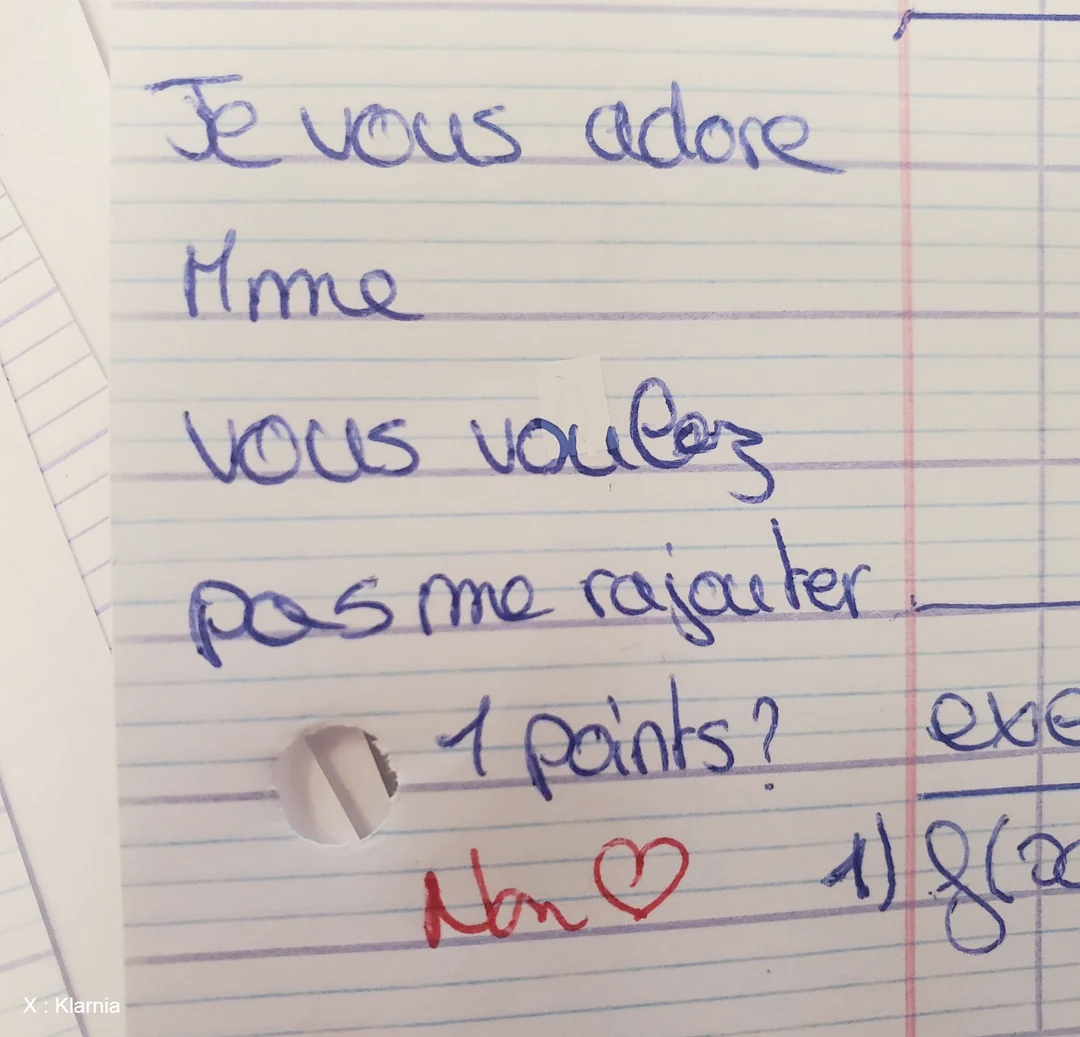 Je vous adore
Mme
vous voulez
pas me rajouter
1 points?
Non ♡
exe
1) g(x
X : Klarnia